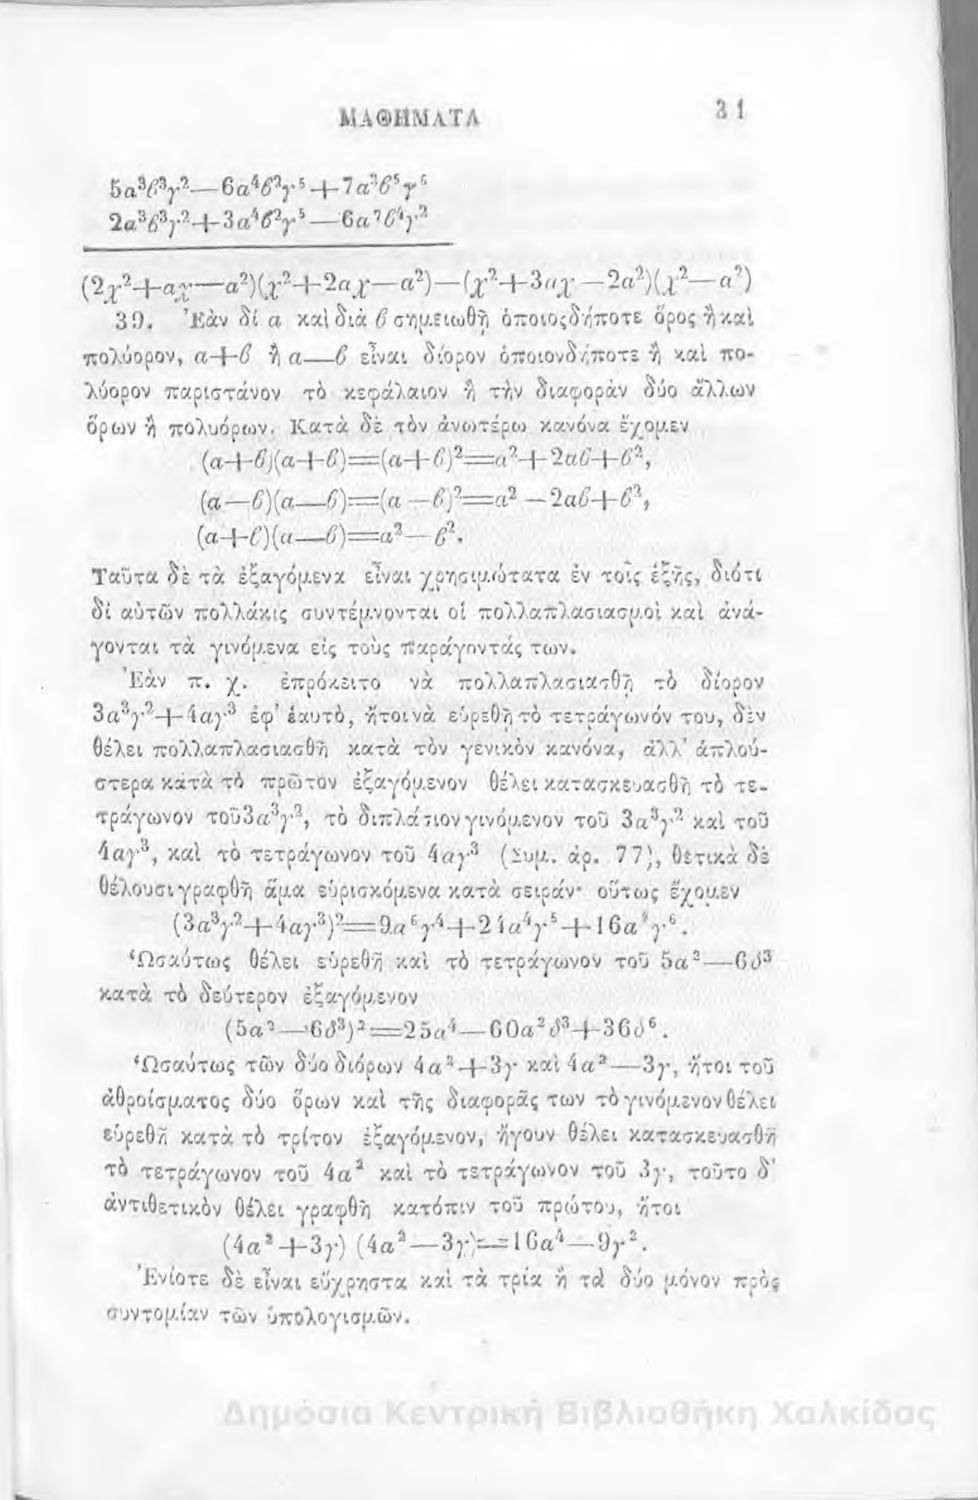 ΜΑΘΗΜΑΤΑ 31
5α³β³γ²—6α⁴β²γ⁵+7α³β⁵γ⁶
2α³β³γ²+3α⁴β²γ⁵—6α⁷β⁴γ²
(2χ²+αχ—α²)(χ²+2αχ—α²)—(χ²+3αχ—2α²)(χ²—α²)
39. Ἐὰν δί α καὶ διὰ β σημειωθῇ ὁποιοςδήποτε ὅρος ἢ καὶ
πολύορον, α+β ἢ α—β εἶναι δίορον ὁποιονδήποτε ἢ καὶ πο-
λύορον παριστάνον τὸ κεφάλαιον ἢ τὴν διαφορὰν δύο ἄλλων
ὅρων ἢ πολυόρων. Κατὰ δὲ τὸν ἀνωτέρω κανόνα ἔχομεν
(α+β)(α+β)=(α+β)²=α²+2αβ+β²,
(α—β)(α—β)=(α—β)²=α²—2αβ+β²,
(α+β)(α—β)=α²—β².
Ταῦτα δὲ τὰ ἐξαγόμενα εἶναι χρησιμώτατα ἐν τοῖς ἑξῆς, διότι
δί αὐτῶν πολλάκις συντέμνονται οἱ πολλαπλασιασμοὶ καὶ ἀνά-
γονται τὰ γινόμενα εἰς τοὺς παράγοντάς των.
Ἐὰν π. χ. ἐπρόκειτο νὰ πολλαπλασιασθῇ τὸ δίορον
3α³γ²+4αγ³ ἐφ' ἑαυτὸ, ἤτοι νὰ εὑρεθῇ τὸ τετράγωνόν του, δὲν
θέλει πολλαπλασιασθῆ κατὰ τὸν γενικὸν κανόνα, ἀλλ' ἁπλού-
στερα κατὰ τὸ πρῶτον ἐξαγόμενον θέλει κατασκευασθῆ τὸ τε-
τράγωνον τοῦ 3α³γ², τὸ διπλάσιον γινόμενον τοῦ 3α³γ² καὶ τοῦ
4αγ³, καὶ τὸ τετράγωνον τοῦ 4αγ³ (Συμ. ἀρ. 77), θετικὰ δὲ
θέλουσι γραφθῆ ἅμα εὑρισκόμενα κατὰ σειράν· οὕτως ἔχομεν
(3α³γ²+4αγ³)²=9α⁶γ⁴+24α⁴γ⁵+16α²γ⁶.
Ὡσαύτως θέλει εὑρεθῆ καὶ τὸ τετράγωνον τοῦ 5α²—6δ³
κατὰ τὸ δεύτερον ἐξαγόμενον
(5α²—6δ³)²=25α⁴—60α²δ³+36δ⁶.
Ὡσαύτως τῶν δύο διόρων 4α²+3γ καὶ 4α²—3γ, ἤτοι τοῦ
ἀθροίσματος δύο ὅρων καὶ τῆς διαφορᾶς των τὸ γινόμενον θέλει
εὑρεθῆ κατὰ τὸ τρίτον ἐξαγόμενον, ἤγουν θέλει κατασκευασθῆ
τὸ τετράγωνον τοῦ 4α² καὶ τὸ τετράγωνον τοῦ 3γ, τοῦτο δ'
ἀντιθετικὸν θέλει γραφθῆ κατόπιν τοῦ πρώτου, ἤτοι
(4α²+3γ) (4α²—3γ)=16α⁴—9γ².
Ἐνίοτε δὲ εἶναι εὔχρηστα καὶ τὰ τρία ἢ τὰ δύο μόνον πρὸς
συντομίαν τῶν ὑπολογισμῶν.
Δημόσια Κεντρική Βιβλιοθήκη Χαλκίδας